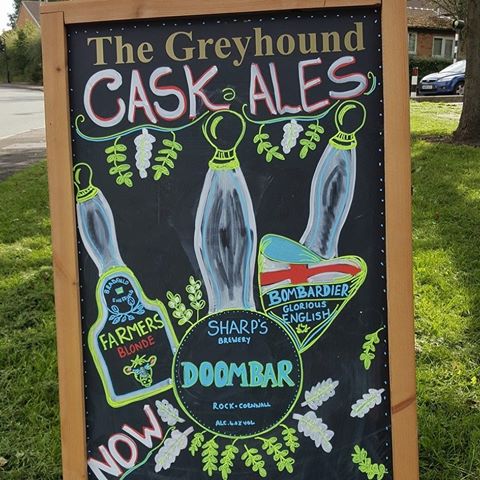 The Greyhound
CASK ALES
BRADFIELD
BREWERY
FARMERS
BLONDE
SHARP'S
BREWERY
DOOMBAR
ROCK • CORNWALL
BOMBARDIER
GLORIOUS
ENGLISH
NOW